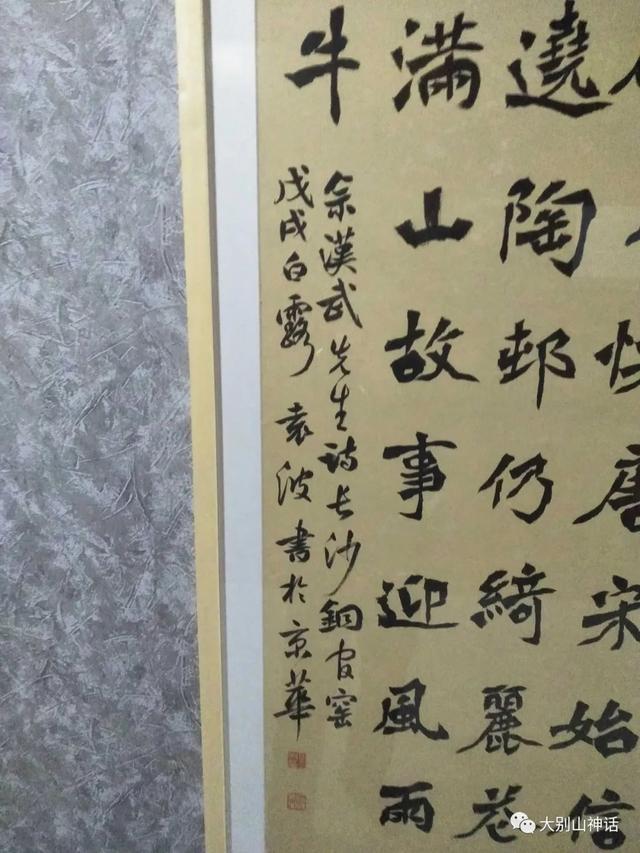 唐宋始信
遶陶邨仍綺麗花
滿山故事迎風雨
牛
余漢武先生詩長沙銅官窯
戊戌白露 袁波書於京華
大别山神话